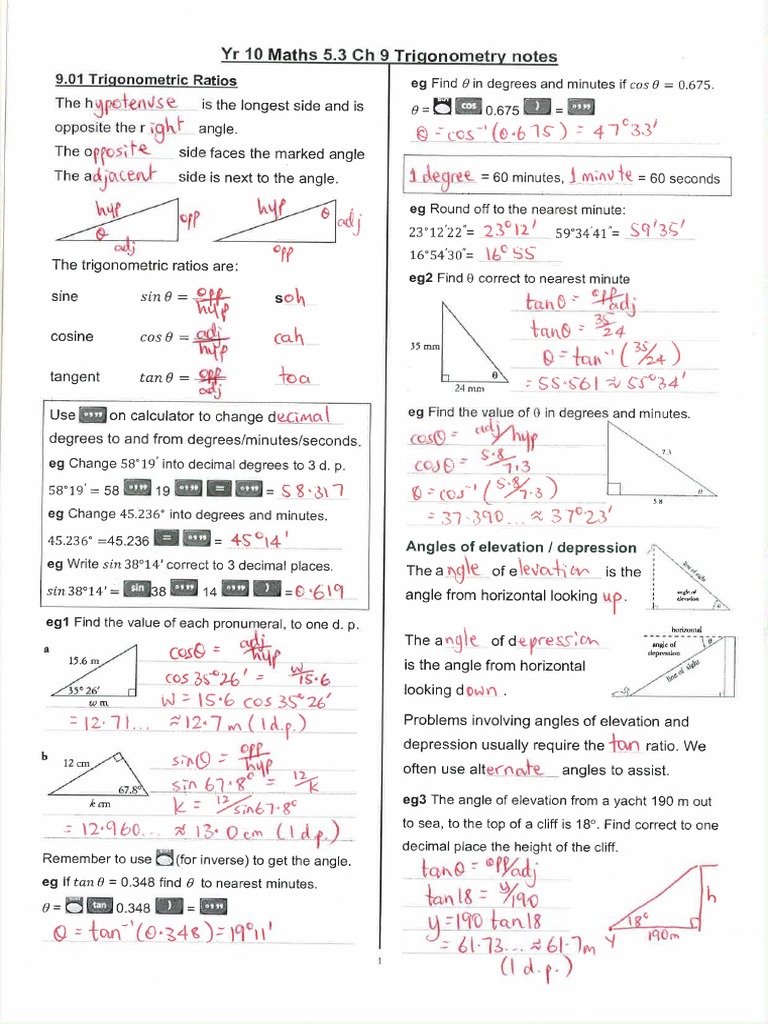 Yr 10 Maths 5.3 Ch 9 Trigonometry notes
9.01 Trigonometric Ratios
The hypotenuse is the longest side and is
opposite the r ight angle.
The opposite side faces the marked angle
The adjacent side is next to the angle.
hyp opp θ adj
hyp θ adj opp
The trigonometric ratios are:
sine sin θ = opp/hyp soh
cosine cos θ = adj/hyp cah
tangent tan θ = opp/adj toa
Use °,,, on calculator to change decimal
degrees to and from degrees/minutes/seconds.
eg Change 58°19′ into decimal degrees to 3 d. p.
58°19′ = 58 °,,, 19 °,,, = °,,, = 58.317
eg Change 45.236° into degrees and minutes.
45.236° =45.236 = °,,, = 45°14′
eg Write sin 38°14′ correct to 3 decimal places.
sin 38°14′ = sin 38 °,,, 14 °,,, ) = 0.619
eg1 Find the value of each pronumeral, to one d. p.
a
15.6 m
35° 26′
w m
cosθ = adj/hyp
cos 35°26′ = w/15.6
w = 15.6 cos 35°26′
= 12.71... ≈ 12.7 m (1 d.p.)
b
12 cm
67.8°
k cm
sinθ = opp/hyp
sin 67.8° = 12/k
k = 12/sin67.8°
= 12.960... ≈ 13.0 cm (1 d.p.)
Remember to use (for inverse) to get the angle.
eg If tan θ = 0.348 find θ to nearest minutes.
θ = tan 0.348 ) = °,,,
θ = tan⁻¹(0.348) = 19°11′
eg Find θ in degrees and minutes if cos θ = 0.675.
θ = cos 0.675 ) = °,,,
θ = cos⁻¹(0.675) = 47°33′
1 degree = 60 minutes, 1 minute = 60 seconds
eg Round off to the nearest minute:
23°12′22″= 23°12′ 59°34′41″= 59′35′
16°54′30″= 16°55
eg2 Find θ correct to nearest minute
35 mm
θ
24 mm
tanθ = opp/adj
tanθ = 35/24
θ = tan⁻¹(35/24)
= 55.561 ≈ 55°34′
eg Find the value of θ in degrees and minutes.
cosθ = adj/hyp
cosθ = 5.8/7.3
θ = cos⁻¹(5.8/7.3)
= 37.390... ≈ 37°23′
7.3
θ
5.8
Angles of elevation / depression
The angle of elevation is the
angle from horizontal looking up.
line of sight
angle of
elevation
The angle of depression
is the angle from horizontal
looking down .
horizontal
angle of
depression
θ
line of sight
Problems involving angles of elevation and
depression usually require the tan ratio. We
often use alternate angles to assist.
eg3 The angle of elevation from a yacht 190 m out
to sea, to the top of a cliff is 18°. Find correct to one
decimal place the height of the cliff.
tanθ = opp/adj
tan18 = y/190
y = 190 tan18
= 61.73... ≈ 61.7m
(1 d.p.)
h
18°
Y 190m
1